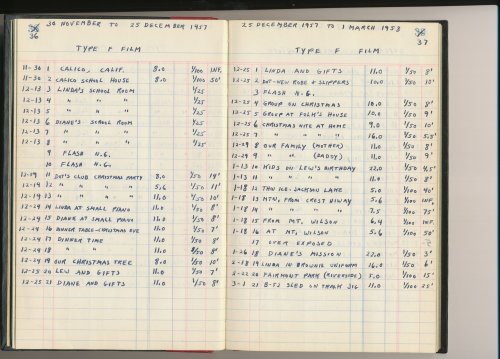 30 NOVEMBER TO 25 DECEMBER 1957
36
TYPE F FILM
11-30 1 CALICO, CALIF. 8.0 1/100 INF.
11-30 2 CALICO SCHOOL HOUSE 8.0 1/100 50'
12-13 3 LINDA'S SCHOOL ROOM 1/25
12-13 4 " " " 1/25
12-13 5 " " " 1/25
12-13 6 DIANE'S SCHOOL ROOM 1/25
12-13 7 " " " 1/25
12-13 8 " " " 1/25
9 FLASH N.G.
10 FLASH N.G.
12-19 11 DOT'S CLUB CHRISTMAS PARTY 8.0 1/50 14'
12-19 12 " " " " 5.6 1/50 11'
12-19 13 " " " " 11.0 1/50 10'
12-24 14 LINDA AT SMALL PIANO 11.0 1/50 8'
12-24 15 DIANE AT SMALL PIANO 11.0 1/50 8'
12-24 16 DINNER TABLE-CHRISTMAS EVE 11.0 1/50 7'
12-24 17 DINNER TIME 11.0 1/50 8'
12-24 18 " " 11.0 1/50 8'
12-24 19 OUR CHRISTMAS TREE 8.0 1/50 10'
12-25 20 LEW AND GIFTS 11.0 1/50 7'
12-25 21 DIANE AND GIFTS 11.0 1/50 8'
25 DECEMBER 1957 TO 1 MARCH 1958
37
TYPE F FILM
12-25 1 LINDA AND GIFTS 11.0 1/50 8'
12-25 2 DOT-NEW ROBE & SLIPPERS 10.0 1/50 10'
3 FLASH N.G.
12-25 4 GROUP ON CHRISTMAS 10.0 1/50 8'
12-25 5 GROUP AT FOLK'S HOUSE 10.0 1/50 9'
12-25 6 CHRISTMAS NITE AT HOME 9.0 1/50 10'
12-25 7 " " " " 16.0 1/50 5.5'
12-29 8 OUR FAMILY (MOTHER) 11.0 1/50 8'
12-29 9 " " (DADDY) 11.0 1/50 9'
1-13 10 KIDS ON LEW'S BIRTHDAY 22.0 1/50 4.5'
1-13 11 " " " " 11.0 1/50 8'
1-18 12 THIN ICE-JACKSON LAKE 5.0 1/100 40'
1-18 13 MTN. FROM CREST HIWAY 5.6 1/100 INF.
1-18 14 " " " " 7.5 1/100 75'
1-18 15 FROM MT. WILSON 6.4 1/100 INF.
1-18 16 AT MT. WILSON 5.6 1/100 50'
17 OVER EXPOSED
1-26 18 DIANE'S MISSION 22.0 1/50 3'
2-18 19 LINDA IN BROWNIE UNIFORM 16.0 1/50 6'
2-22 20 FAIRMONT PARK (RIVERSIDE) 5.0 1/100 15'
3-1 21 B-52 SLED ON TRACK JIG 11.0 1/100 25'